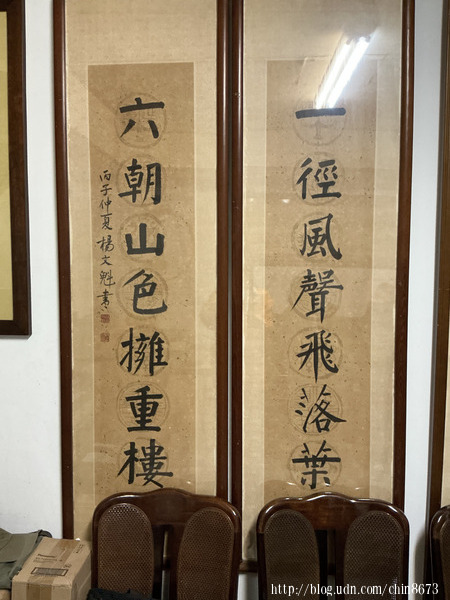 一徑風聲飛落葉
六朝山色擁重樓
丙子仲夏楊文魁書
http://blog.udn.com/chin8673